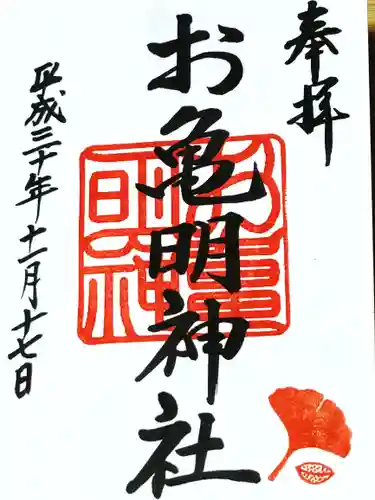 奉拝
お亀明神社
平成三十年十一月十七日